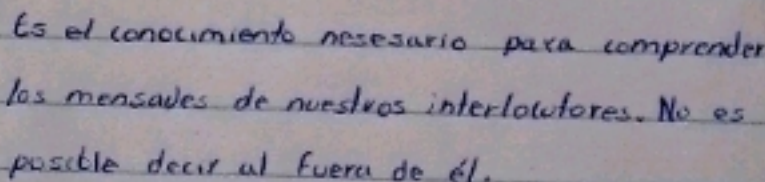 Es el conocimiento nesesario para comprender
los mensajes de nuestros interlocutores. No es
posible decir al fuera de él.